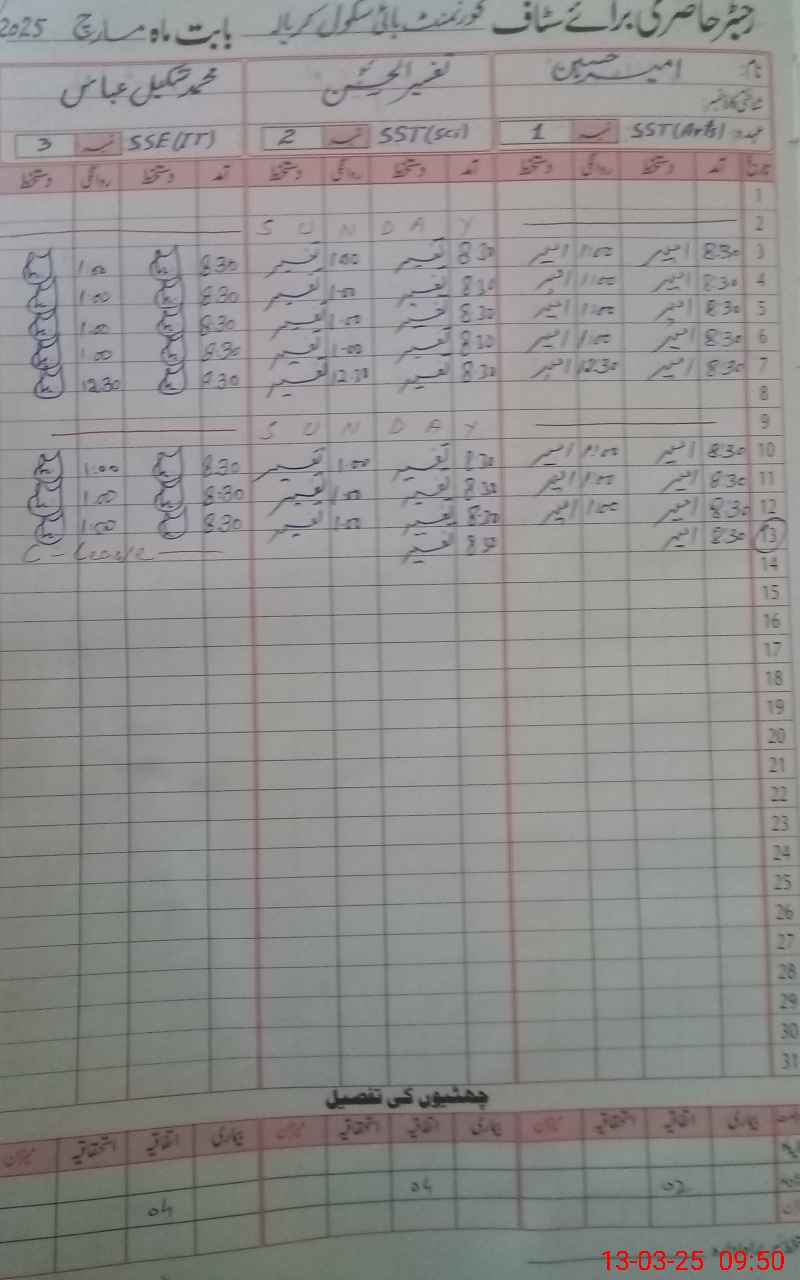 رجسٹر حاضری برائے سٹاف گورنمنٹ ہائی سکول کربلا بابت ماہ مارچ 2025
نام: امیر حسین تفسیر الحسن محمد شکیل عباس
شناختی کارڈ نمبر:
عہدہ: SST(Arts) نمبر 1 SST(Sci) نمبر 2 SSE(IT) نمبر 3
تاریخ آمد دستخط روانگی دستخط آمد دستخط روانگی دستخط آمد دستخط روانگی دستخط
1
2 SUNDAY
3 8:30 امیر 1:00 امیر 8:30 تفسیر 1:00 تفسیر 8:30 1:00
4 8:30 امیر 1:00 امیر 8:30 تفسیر 1:00 تفسیر 8:30 1:00
5 8:30 امیر 1:00 امیر 8:30 تفسیر 1:00 تفسیر 8:30 1:00
6 8:30 امیر 1:00 امیر 8:30 تفسیر 1:00 تفسیر 8:30 1:00
7 8:30 امیر 12:30 امیر 8:30 تفسیر 12:30 تفسیر 8:30 12:30
8
9 SUNDAY
10 8:30 امیر 1:00 امیر 8:30 تفسیر 1:00 تفسیر 8:30 1:00
11 8:30 امیر 1:00 امیر 8:30 تفسیر 1:00 تفسیر 8:30 1:00
12 8:30 امیر 1:00 امیر 8:30 تفسیر 1:00 تفسیر 8:30 1:00
13 8:30 امیر 8:30 تفسیر C-Leave
14
15
16
17
18
19
20
21
22
23
24
25
26
27
28
29
30
31
چھٹیوں کی تفصیل
بیماری اتفاقیہ استحقاقیہ میزان بیماری اتفاقیہ استحقاقیہ میزان بیماری اتفاقیہ استحقاقیہ میزان
02 04
04
13-03-25 09:50